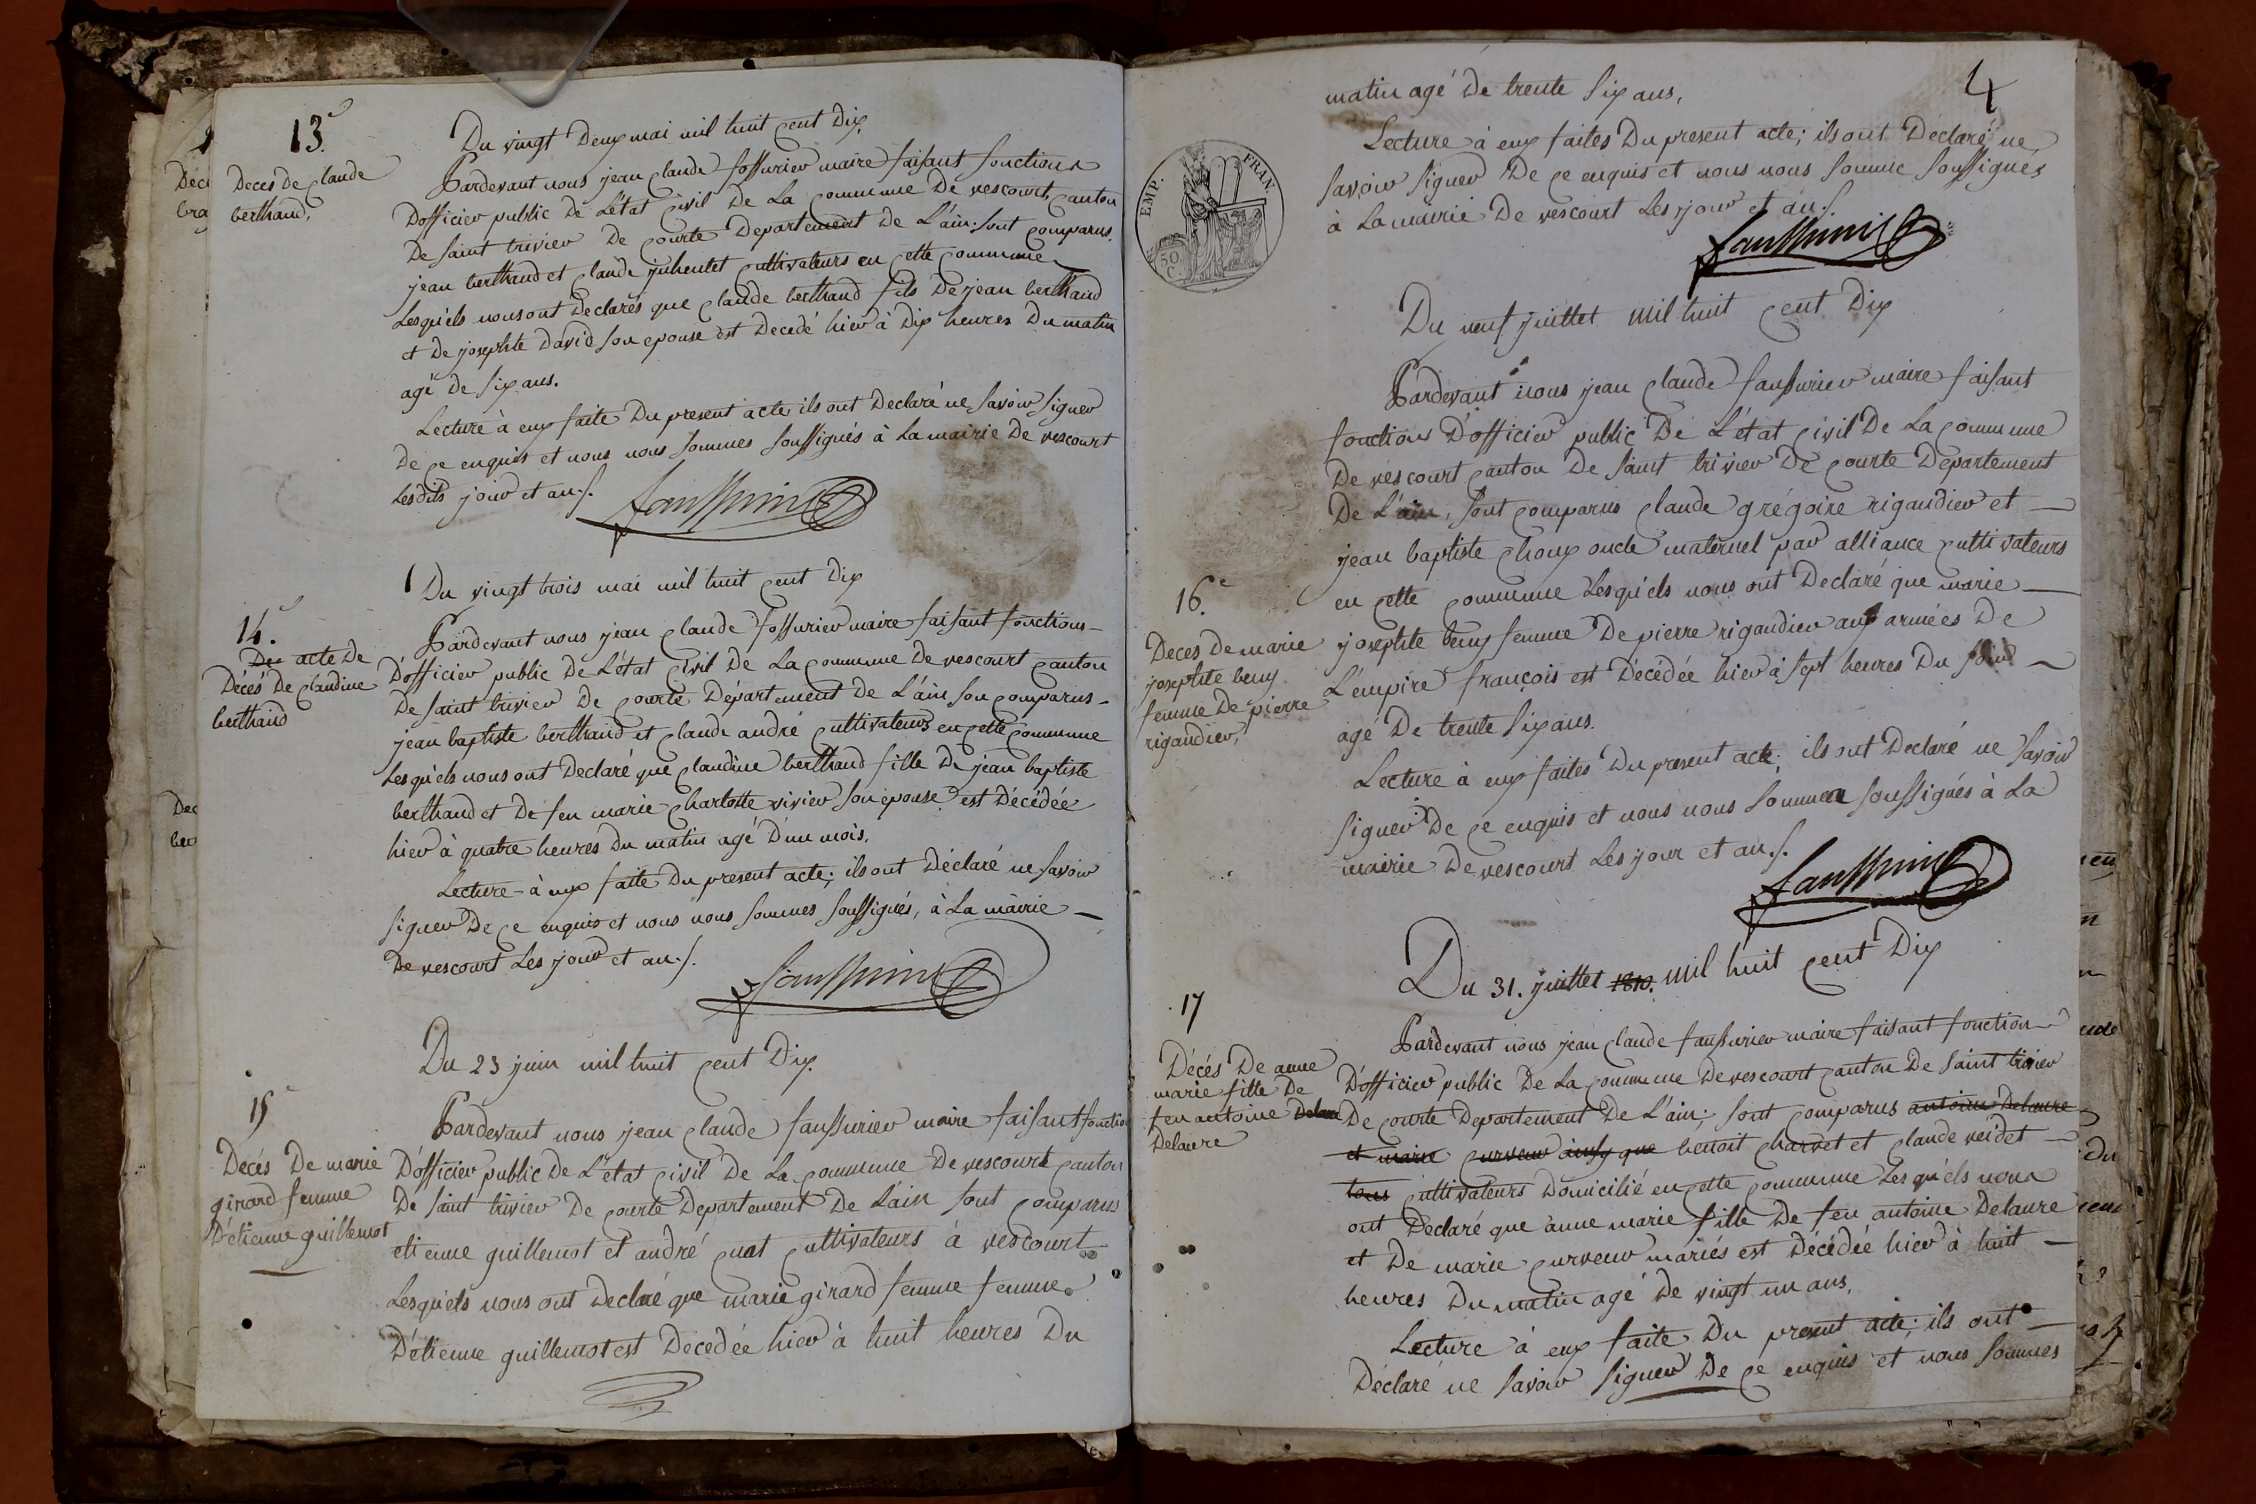 13.e
Deces de claude
berthaud,
Du vingt Deux mai mil huit cent Dix
Pardevant nous jean claude fossurier maire faisant fonctions
D'officier public de L'état civil de La commune De vescourt, canton
De saint trivier De courte Departement de L'ain: sont comparus.
jean berthaud et claude juhentet cultivateurs en cette commune
Lesquels nous ont Declarés que claude berthaud fils De jean berthaud
et De josephte David son epouse est Decedé hier à Dix heures Du matin
agé de six ans.
Lecture à eux faite Du present acte ils ont Declaré ne savoir signer
de ce enquis et nous nous sommes soussignés à La mairie De vescourt
Lesdits jour et an./.
14.e
De acte De
Décés De claudine
berthaud
Du vingt trois mai mil huit cent Dix
Pardevant nous jean claude fossurier maire faisant fonctions
D'officier public de L'état civil De La commune De vescourt canton
De saint trivier De courte Département de L'ain son comparus
jean baptiste berthaud et claude andré cultivateurs en cette commune
Lesquels nous ont Declaré que claudine berthaud fille De jean baptiste
berthaud et De feu marie charlotte vivier son épouse est Décédée
hier à quatre heures du matin agé D'un mois.
Lecture à eux faite Du present acte; ils ont Déclaré ne savoir
signer De ce enquis et nous nous sommes soussignés, à La mairie
De vescourt Les jour et an./.
15e
Decés De marie
girard femme
D'étienne guillemot
Du 23 juin mil huit cent Dix.
Pardevant nous jean claude faussurier maire faisant fonction
D'officier public de L'état civil De La commune De vescourt canton
De saint trivier De courte Departement De L'ain sont comparus
etienne guillemot et andré cuat cultivateurs à vescourt
Lesquels nous ont declaré que marie girard femme femme
D'étienne guillemot est Decedée hier à huit heures Du
4
matin agé De trente six ans,
Lecture à eux faites Du present acte; ils ont Déclaré ne
savoir signer De ce enquis et nous nous somme soussignés
à La mairie De vescourt Les jour et an./.
EMP. FRAN.
50
C.
16.e
Deces de marie
josephte beny
femme De pierre
rigaudier,
Du neuf juillet mil huit cent Dix
Pardevant nous jean claude faussurier maire faisant
fonctions D'officier public De L'état civil De La commune
De vescourt canton De saint trivier De courte Departement
De L'ain, sont comparus claude grégoire rigaudier et
jean baptiste choux oncle maternel par alliance cultivateurs
en cette commune Lesquels nous ont Declaré que marie
josephte beny femme De pierre rigaudier aux armées De
L'empire françois est Décédée hier à sept heures Du soir
agé De trente six ans.
Lecture à eux faites Du present acte; ils ont Declaré ne savoir
signer De ce enquis et nous nous sommes soussignés à La
mairie De vescourt Les jour et an./.
17
Décés De anne
marie fille De
feu antoine Delau
Delaure
Du 31. juillet 1810. mil huit cent Dix
Pardevant nous jean claude faussurier maire faisant fonction
D'officier public De La commune De vescourt canton De saint trivier
De courte Departement De L'ain; sont comparus antoine Delaure
et marie curveur ainsy que benoit charvet et claude veidet
tous cultivateurs Domicilié en cette commune Lesquels nous
ont Declaré que anne marie fille De feu antoine Delaure
et De marie curveur mariés est Décédée hier à huit
heures Du matin agé De vingt un ans,
Lecture à eux faite Du present acte; ils ont
Déclaré ne savoir signer De ce enquis et nous sommes